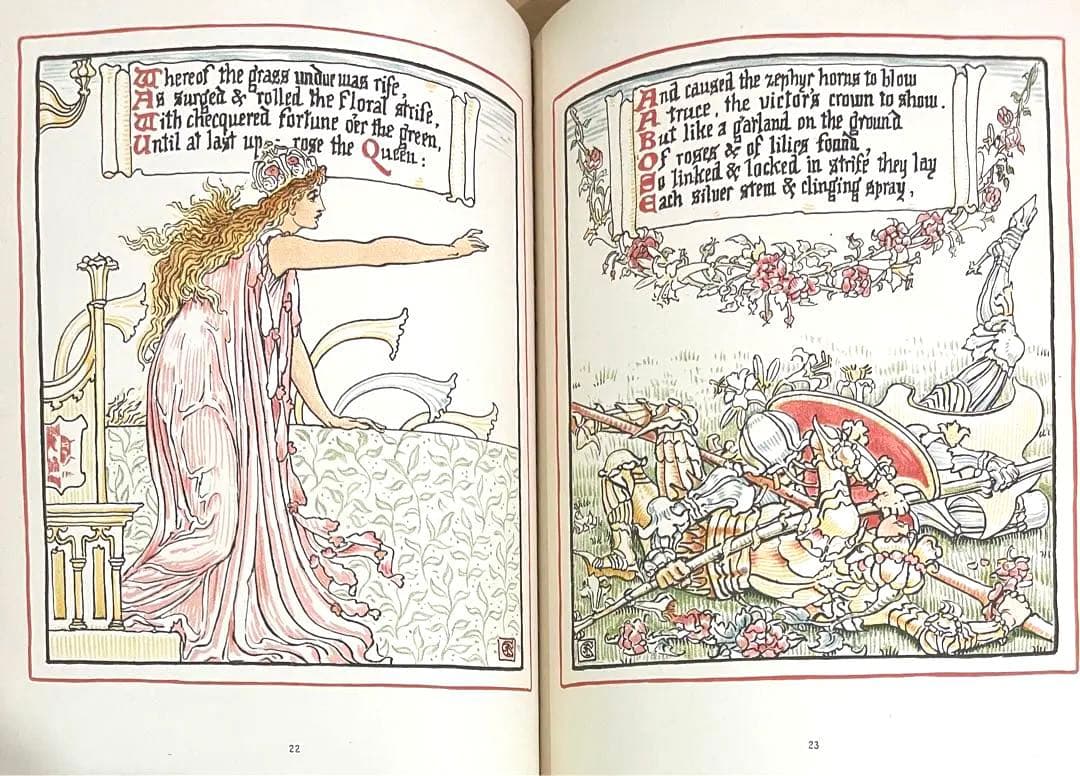 Whereof the grass undue was rife,
As surged & rolled the Floral strife,
With checquered fortune o'er the green,
Until at last up-rose the Queen:
And caused the zephyr horns to blow
A truce, the victor's crown to show.
But like a garland on the ground
Of roses & of lilies found,
So linked & locked in strife they lay
Each silver stem & clinging spray,
22
23